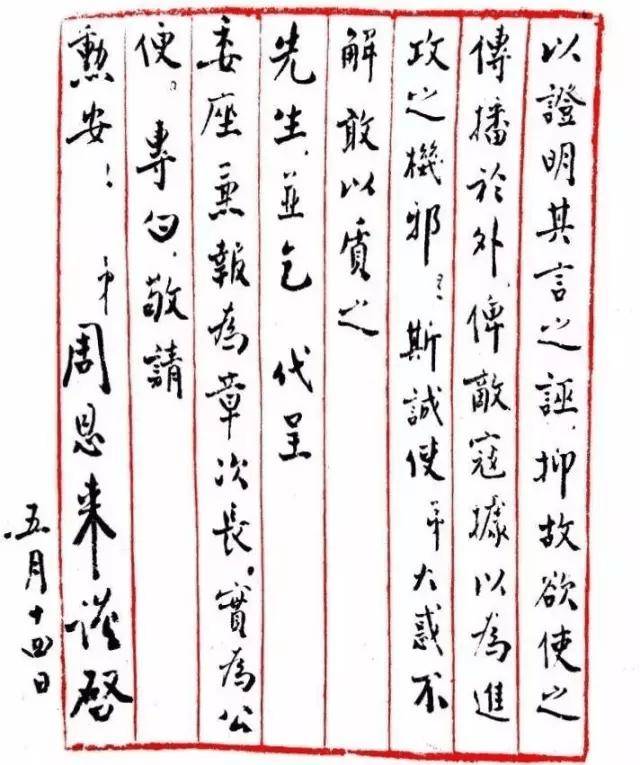 以證明其言之誣，抑故欲使之
傳播於外，俾敵寇據以為進
攻之機邪？斯誠使弟大惑不
解敢以質之
先生，並乞 代呈
委座
報為章次長，實為公
便。專
敬請
勳安！
弟
周恩來謹啓
五月十四日